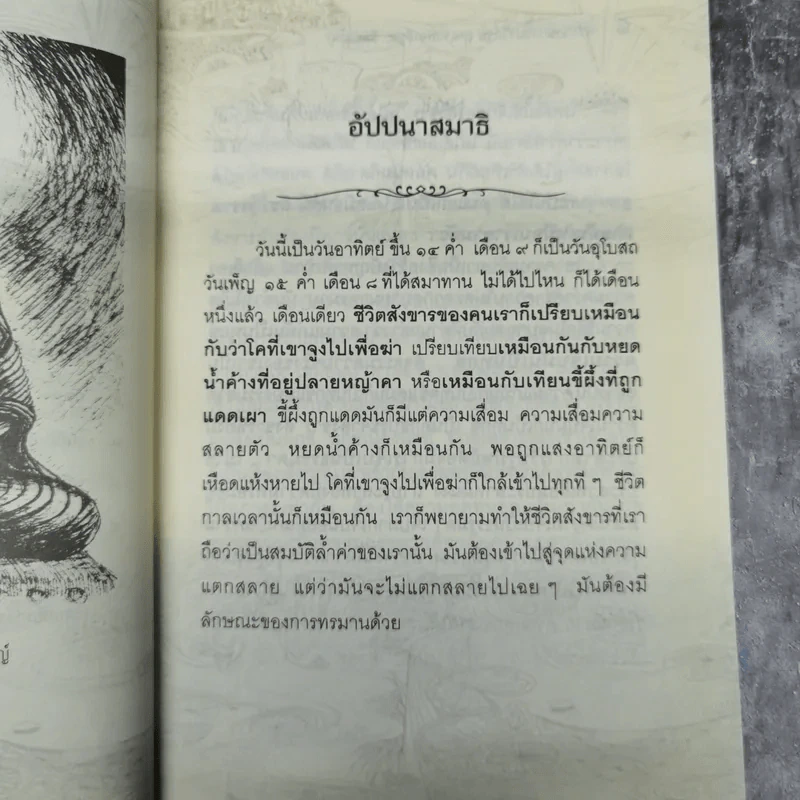 อัปปนาสมาธิ
วันนี้เป็นวันอาทิตย์ ขึ้น ๑๔ ค่ำ เดือน ๙ ก็เป็นวันอุโบสถ
วันเพ็ญ ๑๕ ค่ำ เดือน ๘ ที่ได้สมาทาน ไม่ได้ไปไหน ก็ได้เดือน
หนึ่งแล้ว เดือนเดียว ชีวิตสังขารของคนเราก็เปรียบเหมือน
กับว่าโคที่เขาจูงไปเพื่อฆ่า เปรียบเทียบเหมือนกันกับหยด
น้ำค้างที่อยู่ปลายหญ้าคา หรือเหมือนกับเทียนขี้ผึ้งที่ถูก
แดดเผา ขี้ผึ้งถูกแดดมันก็มีแต่ความเสื่อม ความเสื่อมความ
สลายตัว หยดน้ำค้างก็เหมือนกัน พอถูกแสงอาทิตย์ก็
เหือดแห้งหายไป โคที่เขาจูงไปเพื่อฆ่าก็ใกล้เข้าไปทุกที ๆ ชีวิต
กาลเวลานั้นก็เหมือนกัน เราก็พยายามทำให้ชีวิตสังขารที่เรา
ถือว่าเป็นสมบัติล้ำค่าของเรานั้น มันต้องเข้าไปสู่จุดแห่งความ
แตกสลาย แต่ว่ามันจะไม่แตกสลายไปเฉย ๆ มันต้องมี
ลักษณะของการทรมานด้วย